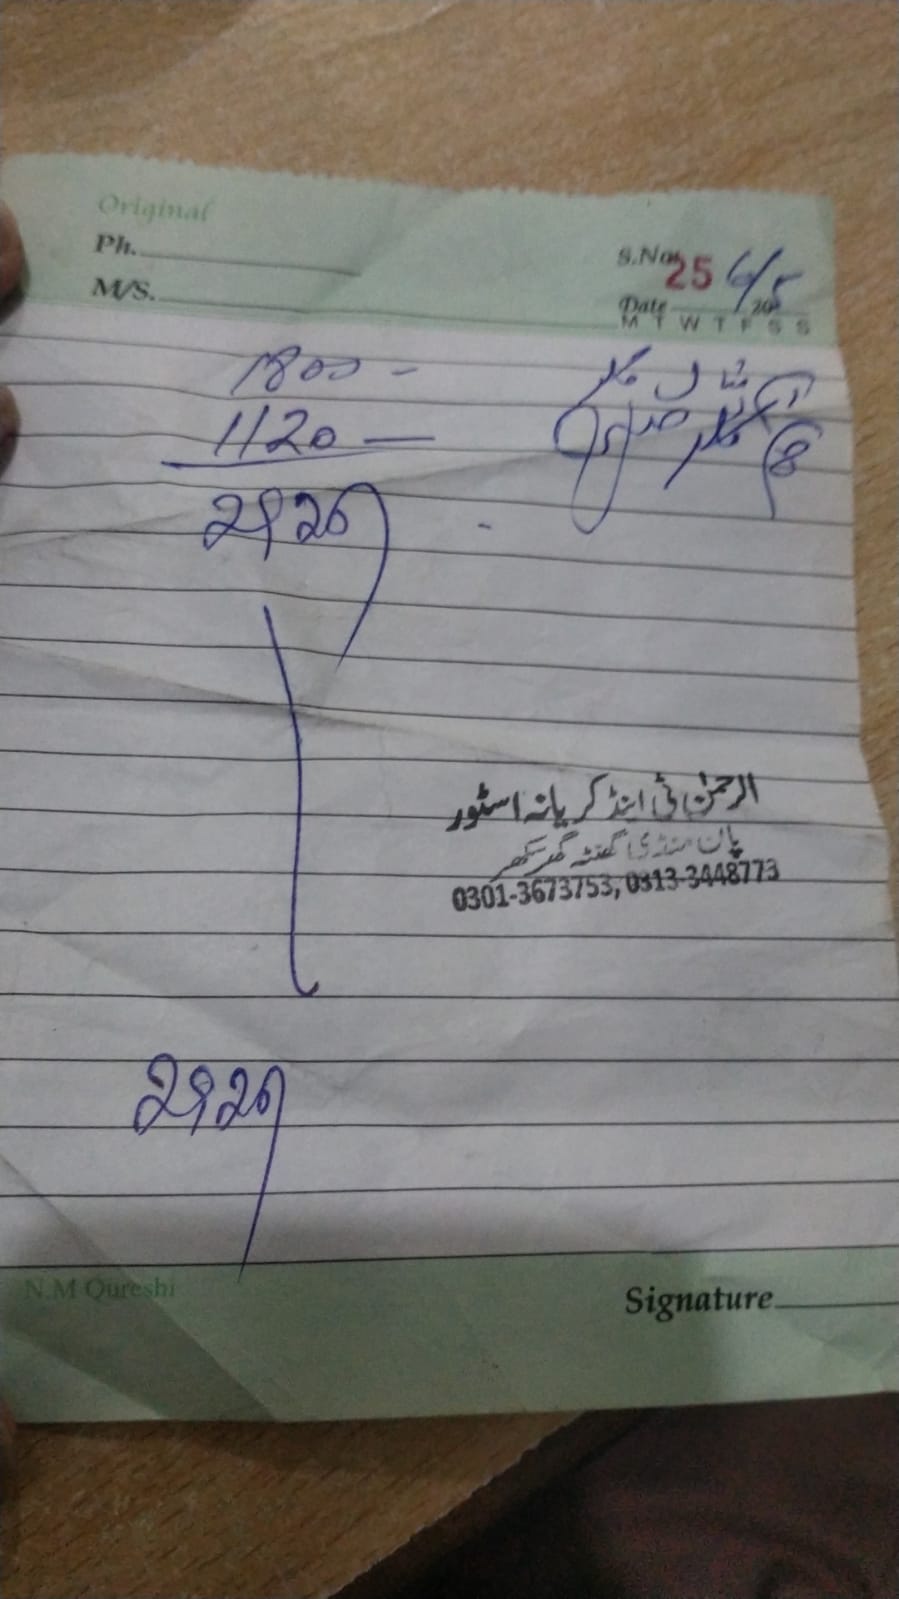 Original
Ph.
M/S.
S.No. 25
Date 6/5 20
M T W T F S S
1800 -
1120 —
2920
الرحمٰن ٹی اینڈ کریانہ اسٹور
پان منڈی گھنٹہ گھر سکھر
0301-3673753, 0313-3448773
2920
N.M Qureshi
Signature